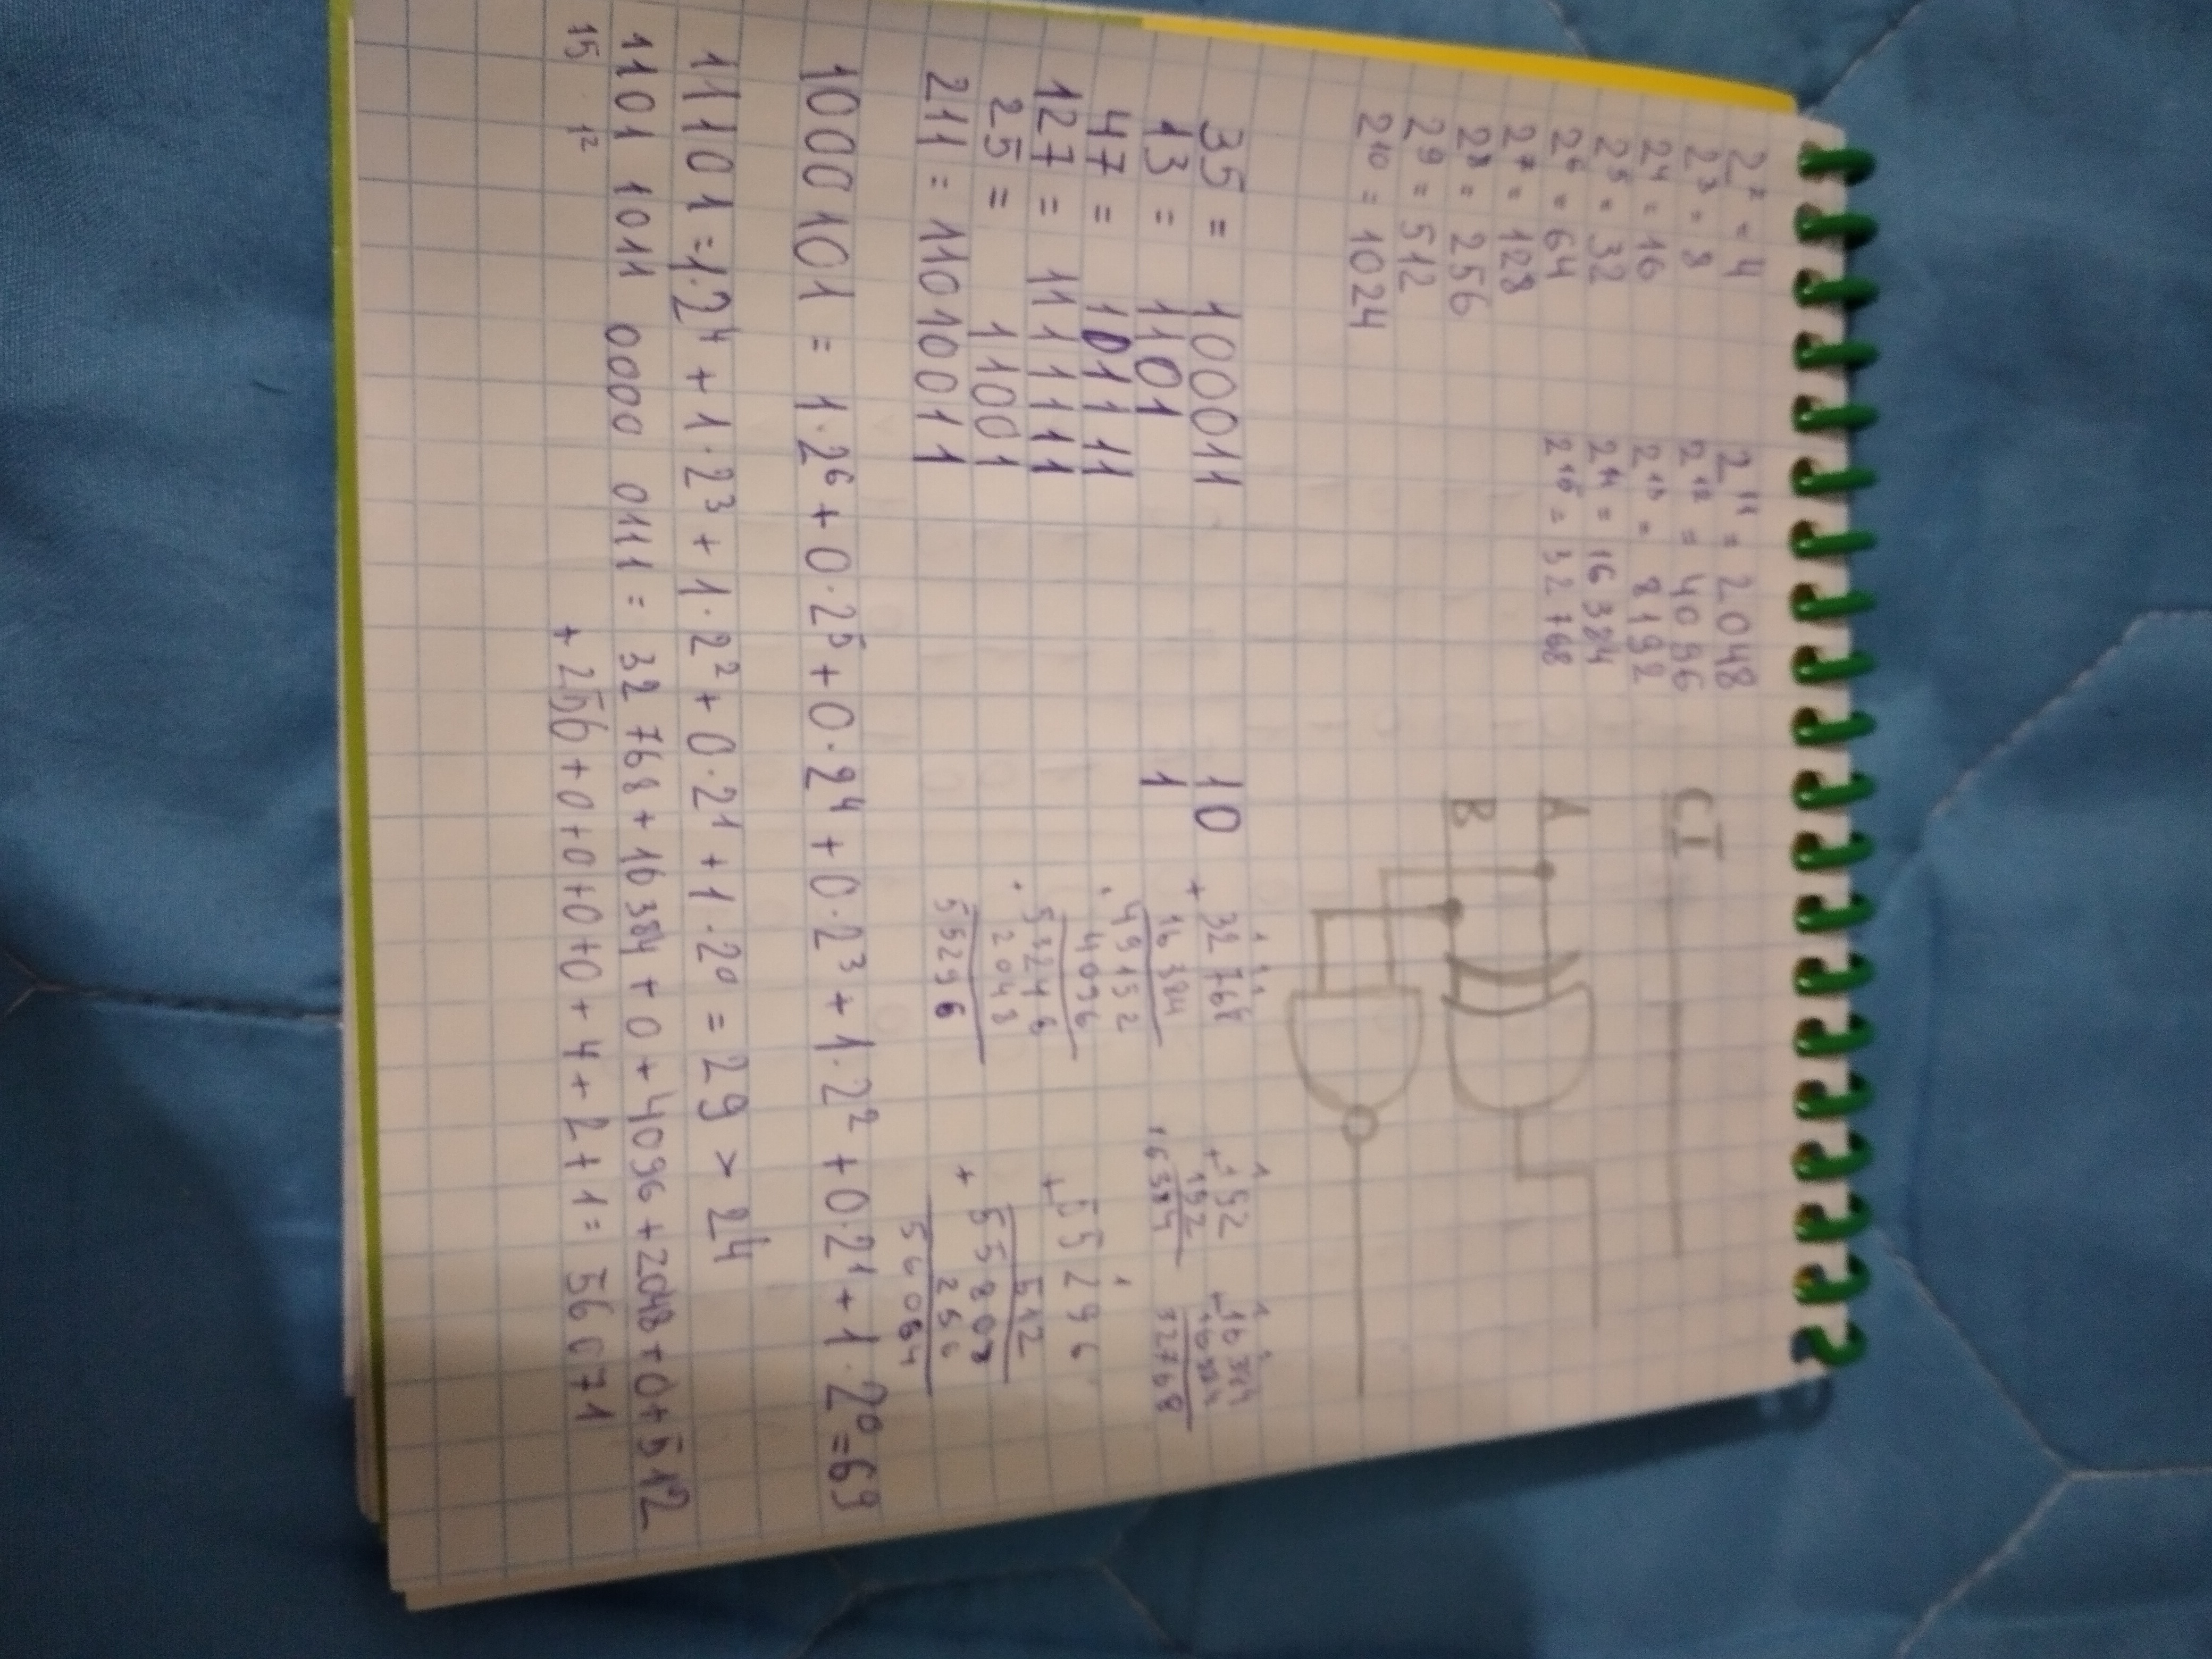 2² = 4
2³ = 8
2⁴ = 16
2⁵ = 32
2⁶ = 64
2⁷ = 128
2⁸ = 256
2⁹ = 512
2¹⁰ = 1024
2¹¹ = 2048
2¹² = 4096
2¹³ = 8192
2¹⁴ = 16 384
2¹⁵ = 32 768
CI
A
B
35 = 100011
13 = 1101
47 = 101111
127 = 1111111
25 = 11001
211 = 11010011
10
1
+ 32 768
16 384
49152
4096
53248
2048
55296
192
+ 192
16384
+ 16 384
16384
32768
1
+ 55296
512
+ 55808
256
56064
1000101 = 1·2⁶ + 0·2⁵ + 0·2⁴ + 0·2³ + 1·2² + 0·2¹ + 1·2⁰ = 69
11101 = 1·2⁴ + 1·2³ + 1·2² + 0·2¹ + 1·2⁰ = 29 > 24
1101 1011 0000 0111 = 32 768 + 16 384 + 0 + 4096 + 2048 + 0 + 512
15 12 + 256 + 0 + 0 + 0 + 0 + 4 + 2 + 1 = 56 071